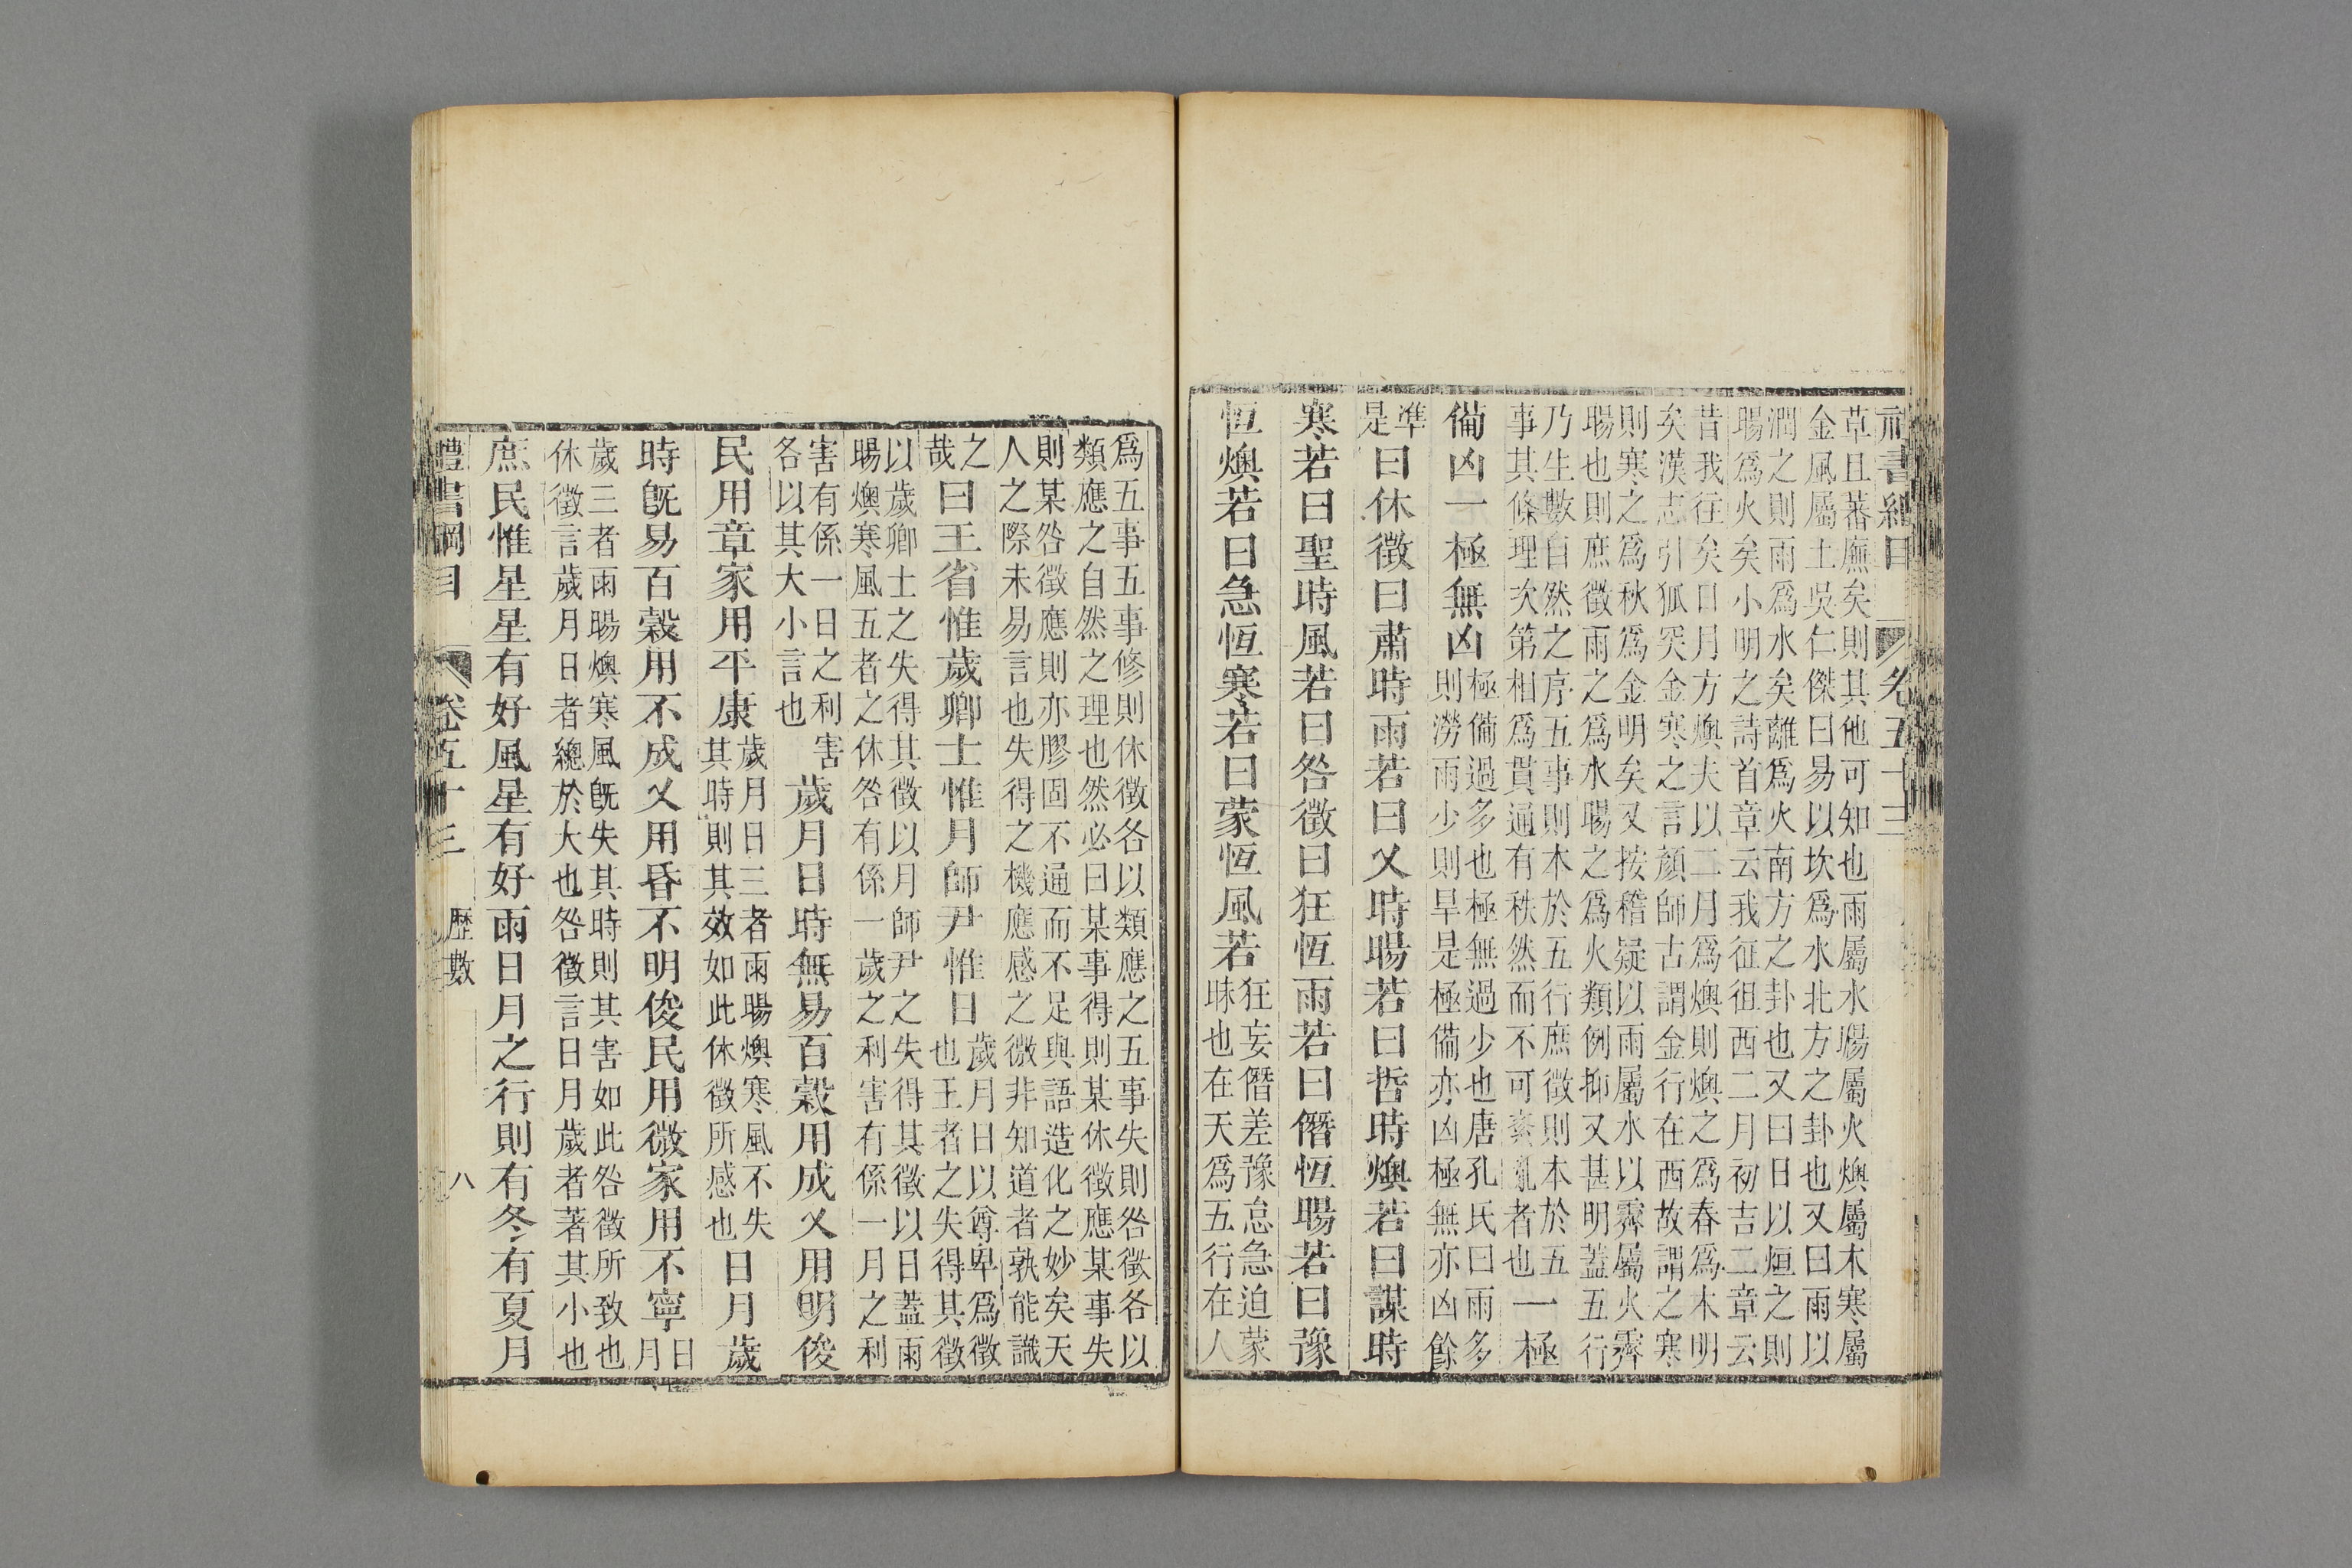 禮書綱目 卷五十三
草且蕃廡矣則其他可知也雨屬水暘屬火燠屬木寒屬
金風屬土吳仁傑曰易以坎爲水北方之卦也又曰雨以
潤之則雨爲水矣離爲火南方之卦也又曰日以烜之則
暘爲火矣小明之詩首章云我征徂西二月初吉二章云
昔我往矣日月方燠夫以二月爲燠則燠之爲春爲木明
矣漢志引狐突金寒之言顏師古謂金行在西故謂之寒
則寒之爲秋爲金明矣又按稽疑以雨屬水以霽屬火霽
暘也則庶徵雨之爲水暘之爲火類例抑又甚明蓋五行
乃生數自然之序五事則本於五行庶徵則本於五
事其條理次第相爲貫通有秩然而不可紊亂者也一極
備凶一極無凶
極備過多也極無過少也唐孔氏曰雨多
則澇雨少則旱是極備亦凶極無亦凶餘
準
是
曰休徵曰肅時雨若曰乂時暘若曰哲時燠若曰謀時
寒若曰聖時風若曰咎徵曰狂恆雨若曰僭恆暘若曰豫
恆燠若曰急恆寒若曰蒙恆風若
狂妄僭差豫怠急迫蒙
昧也在天爲五行在人
爲五事五事修則休徵各以類應之五事失則咎徵各以
類應之自然之理也然必曰某事得則某休徵應某事失
則某咎徵應則亦膠固不通而不足與語造化之妙矣天
人之際未易言也失得之機應感之微非知道者孰能識
之
哉
曰王省惟歲卿士惟月師尹惟日
歲月日以尊卑爲徵
也王者之失得其徵
以歲卿士之失得其徵以月師尹之失得其徵以日蓋雨
暘燠寒風五者之休咎有係一歲之利害有係一月之利
害有係一日之利害
各以其大小言也
歲月日時無易百穀用成乂用明俊
民用章家用平康
歲月日三者雨暘燠寒風不失
其時則其效如此休徵所感也
日月歲
時旣易百穀用不成乂用昏不明俊民用微家用不寧
日
月
歲三者雨暘燠寒風旣失其時則其害如此咎徵所致也
休徵言歲月日者總於大也咎徵言日月歲者著其小也
庶民惟星星有好風星有好雨日月之行則有冬有夏月
禮書綱目 卷五十三 歷數 八